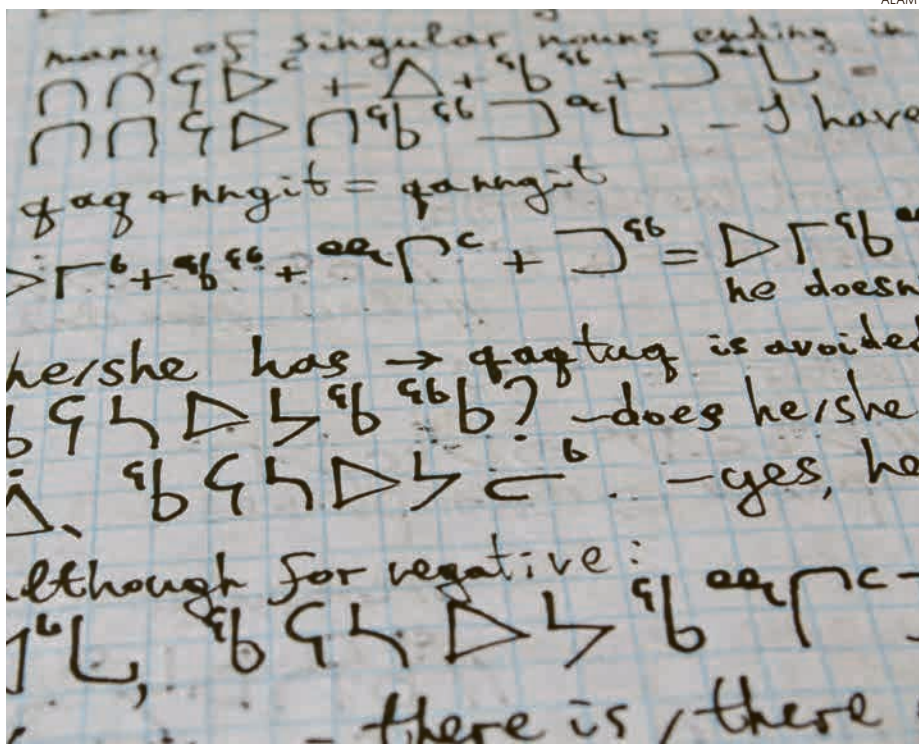 ALAM
many of singular nouns ending in
ᑎᑎᕋᐅᑦ + ᐃ + ᖃᖅ + ᑐᙵ =
ᑎᑎᕋᐅᑎᖃᖅᑐᙵ - I have
qaq + nngit = qanngit
ᐅᒥᒃ + ᖃᖅ + ᙱᑦ + ᑐᖅ = ᐅᒥᖃ
he doesn
he/she has → qaqtuq is avoided
ᖃᕋᓴᐅᔭᖃᖅᑲ? - does he/she
ᐄ, ᖃᕋᓴᐅᔭᓖᒃ. - yes, he
although for negative:
ᖃᕋᓴᐅᔭᖃᙱᑦ-
- there is / there